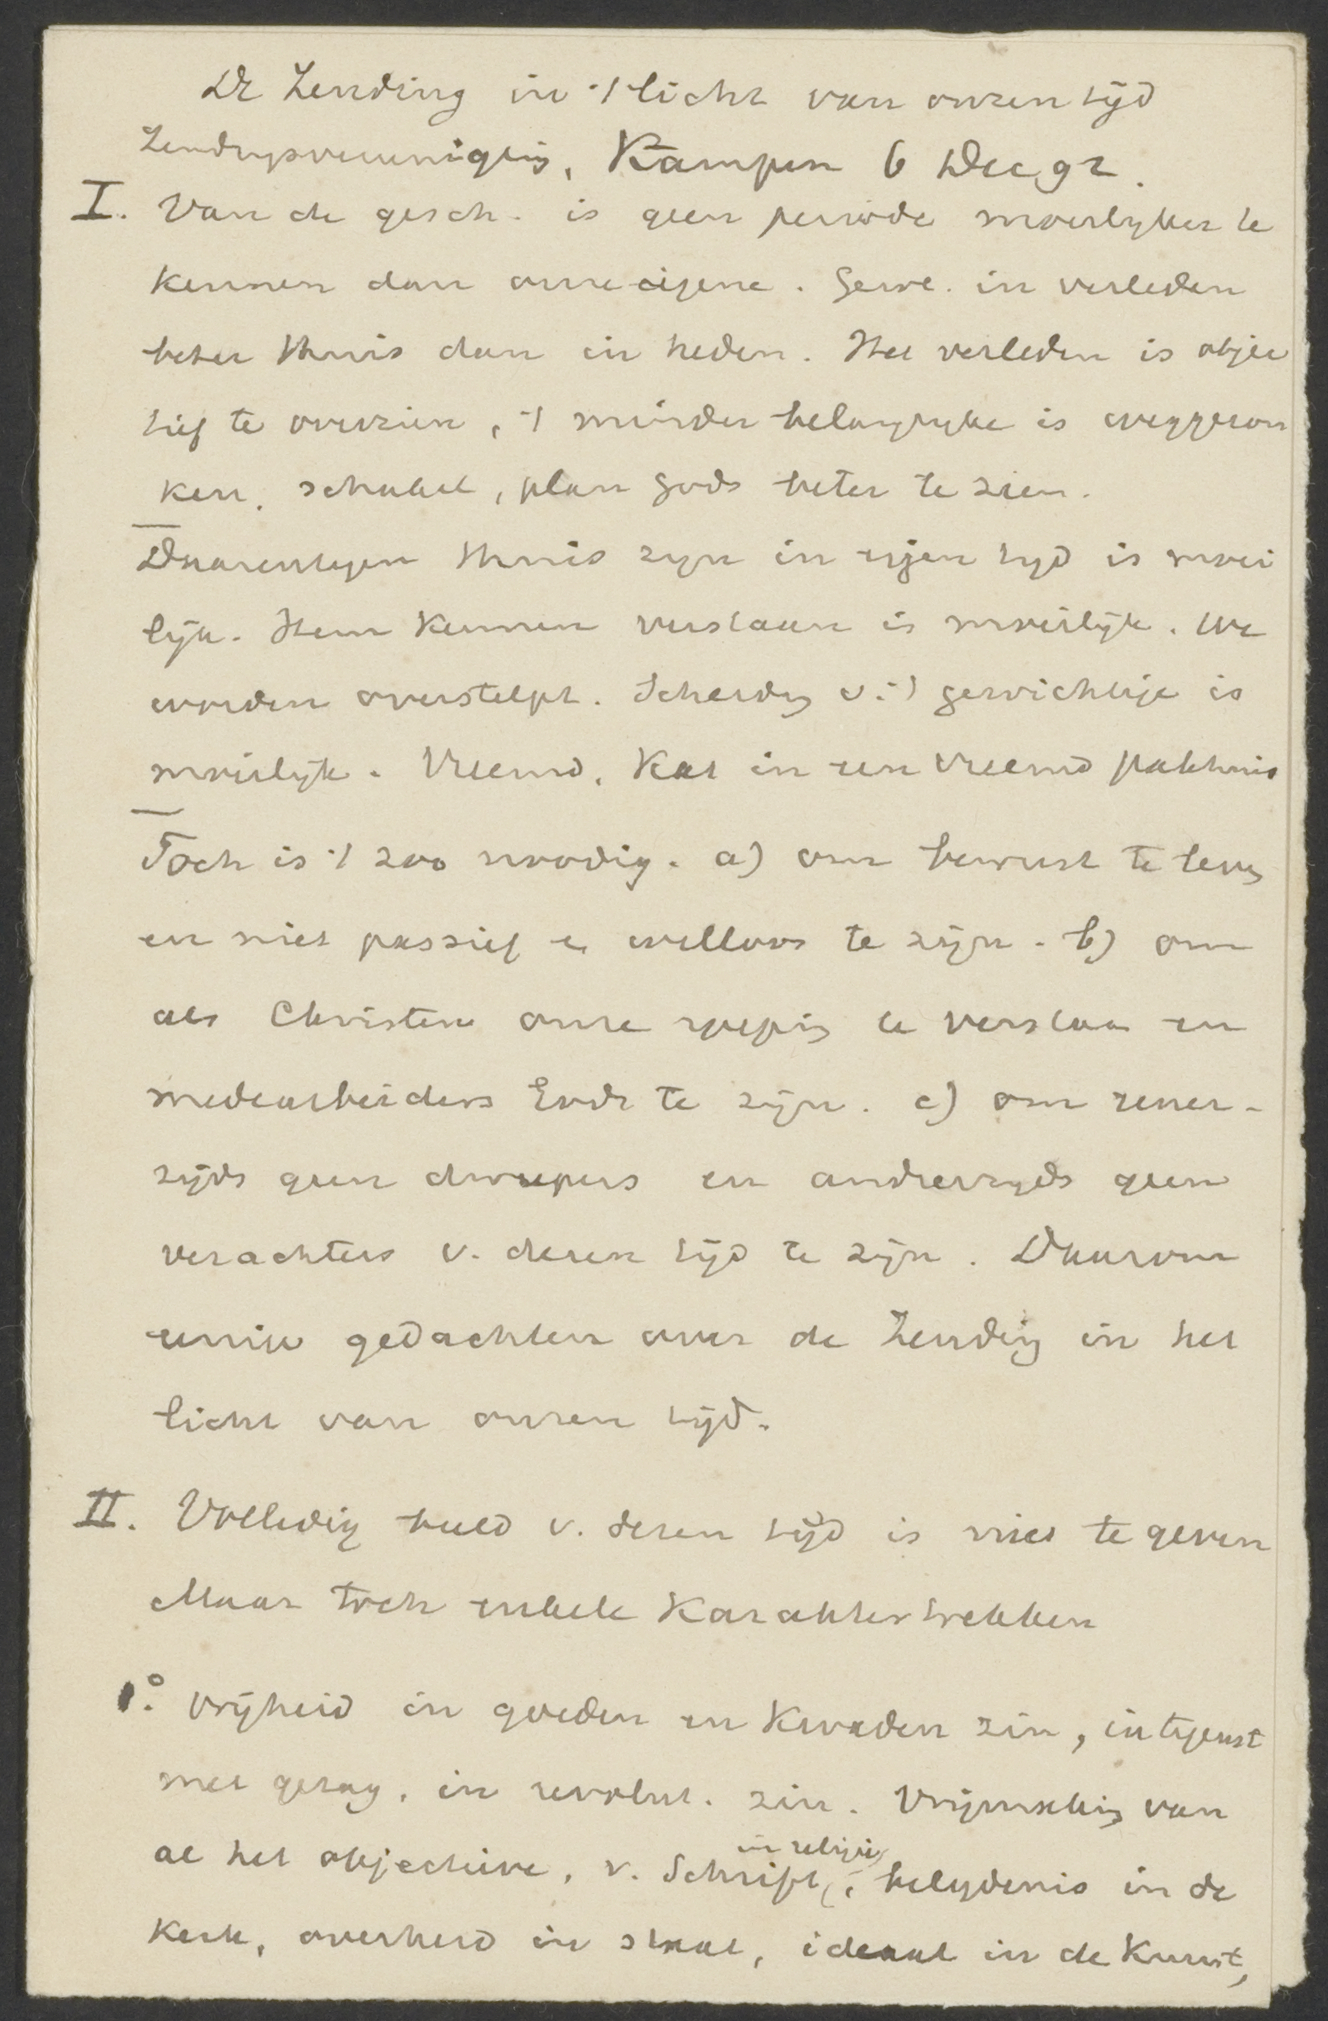 De Zending in 't licht van onzen tijd
Zendingsvereeniging, Kampen 6 Dec 92.
I. Van de gesch. is geen periode moeilyker te
kennen dan onze eigene. Gewl. in verleden
beter thuis dan in heden. Het verleden is objec
tief te overzien, 't minder belangryke is weggezon
ken. schakel, plan Gods beter te zien.
Daarentegen thuis zyn in eigen tyd is moei
lijk. Hem kennen verstaan is moeilijk. We
worden overstelpt. Scheidg v. 't gewichtige is
moeilijk. Vreemd. Kat in een vreemd pakhuis
Toch is 't zoo noodig. a) om bewust te leven
en niet passief en willoos te zijn. b) om
als Christen onze roeping te verstaan en
medearbeiders Gods te zijn. c) om eener-
zijds geen dweepers en anderzyds geen
verachters v. dezen tijd te zijn. Daarom
eenige gedachten over de Zending in het
licht van onzen tijd.
II. Volledig beeld v. dezen tijd is niet te geven
Maar toch enkele Karaktertrekken
1° Vrijheid in goeden en Kwaden zin, in tegenst
met gezag, in revolut. zin. Vrijmaking van
al het objectieve, v. Schrift in religie, belydenis in de
Kerk, overheid in staat, ideaal in de Kunst,